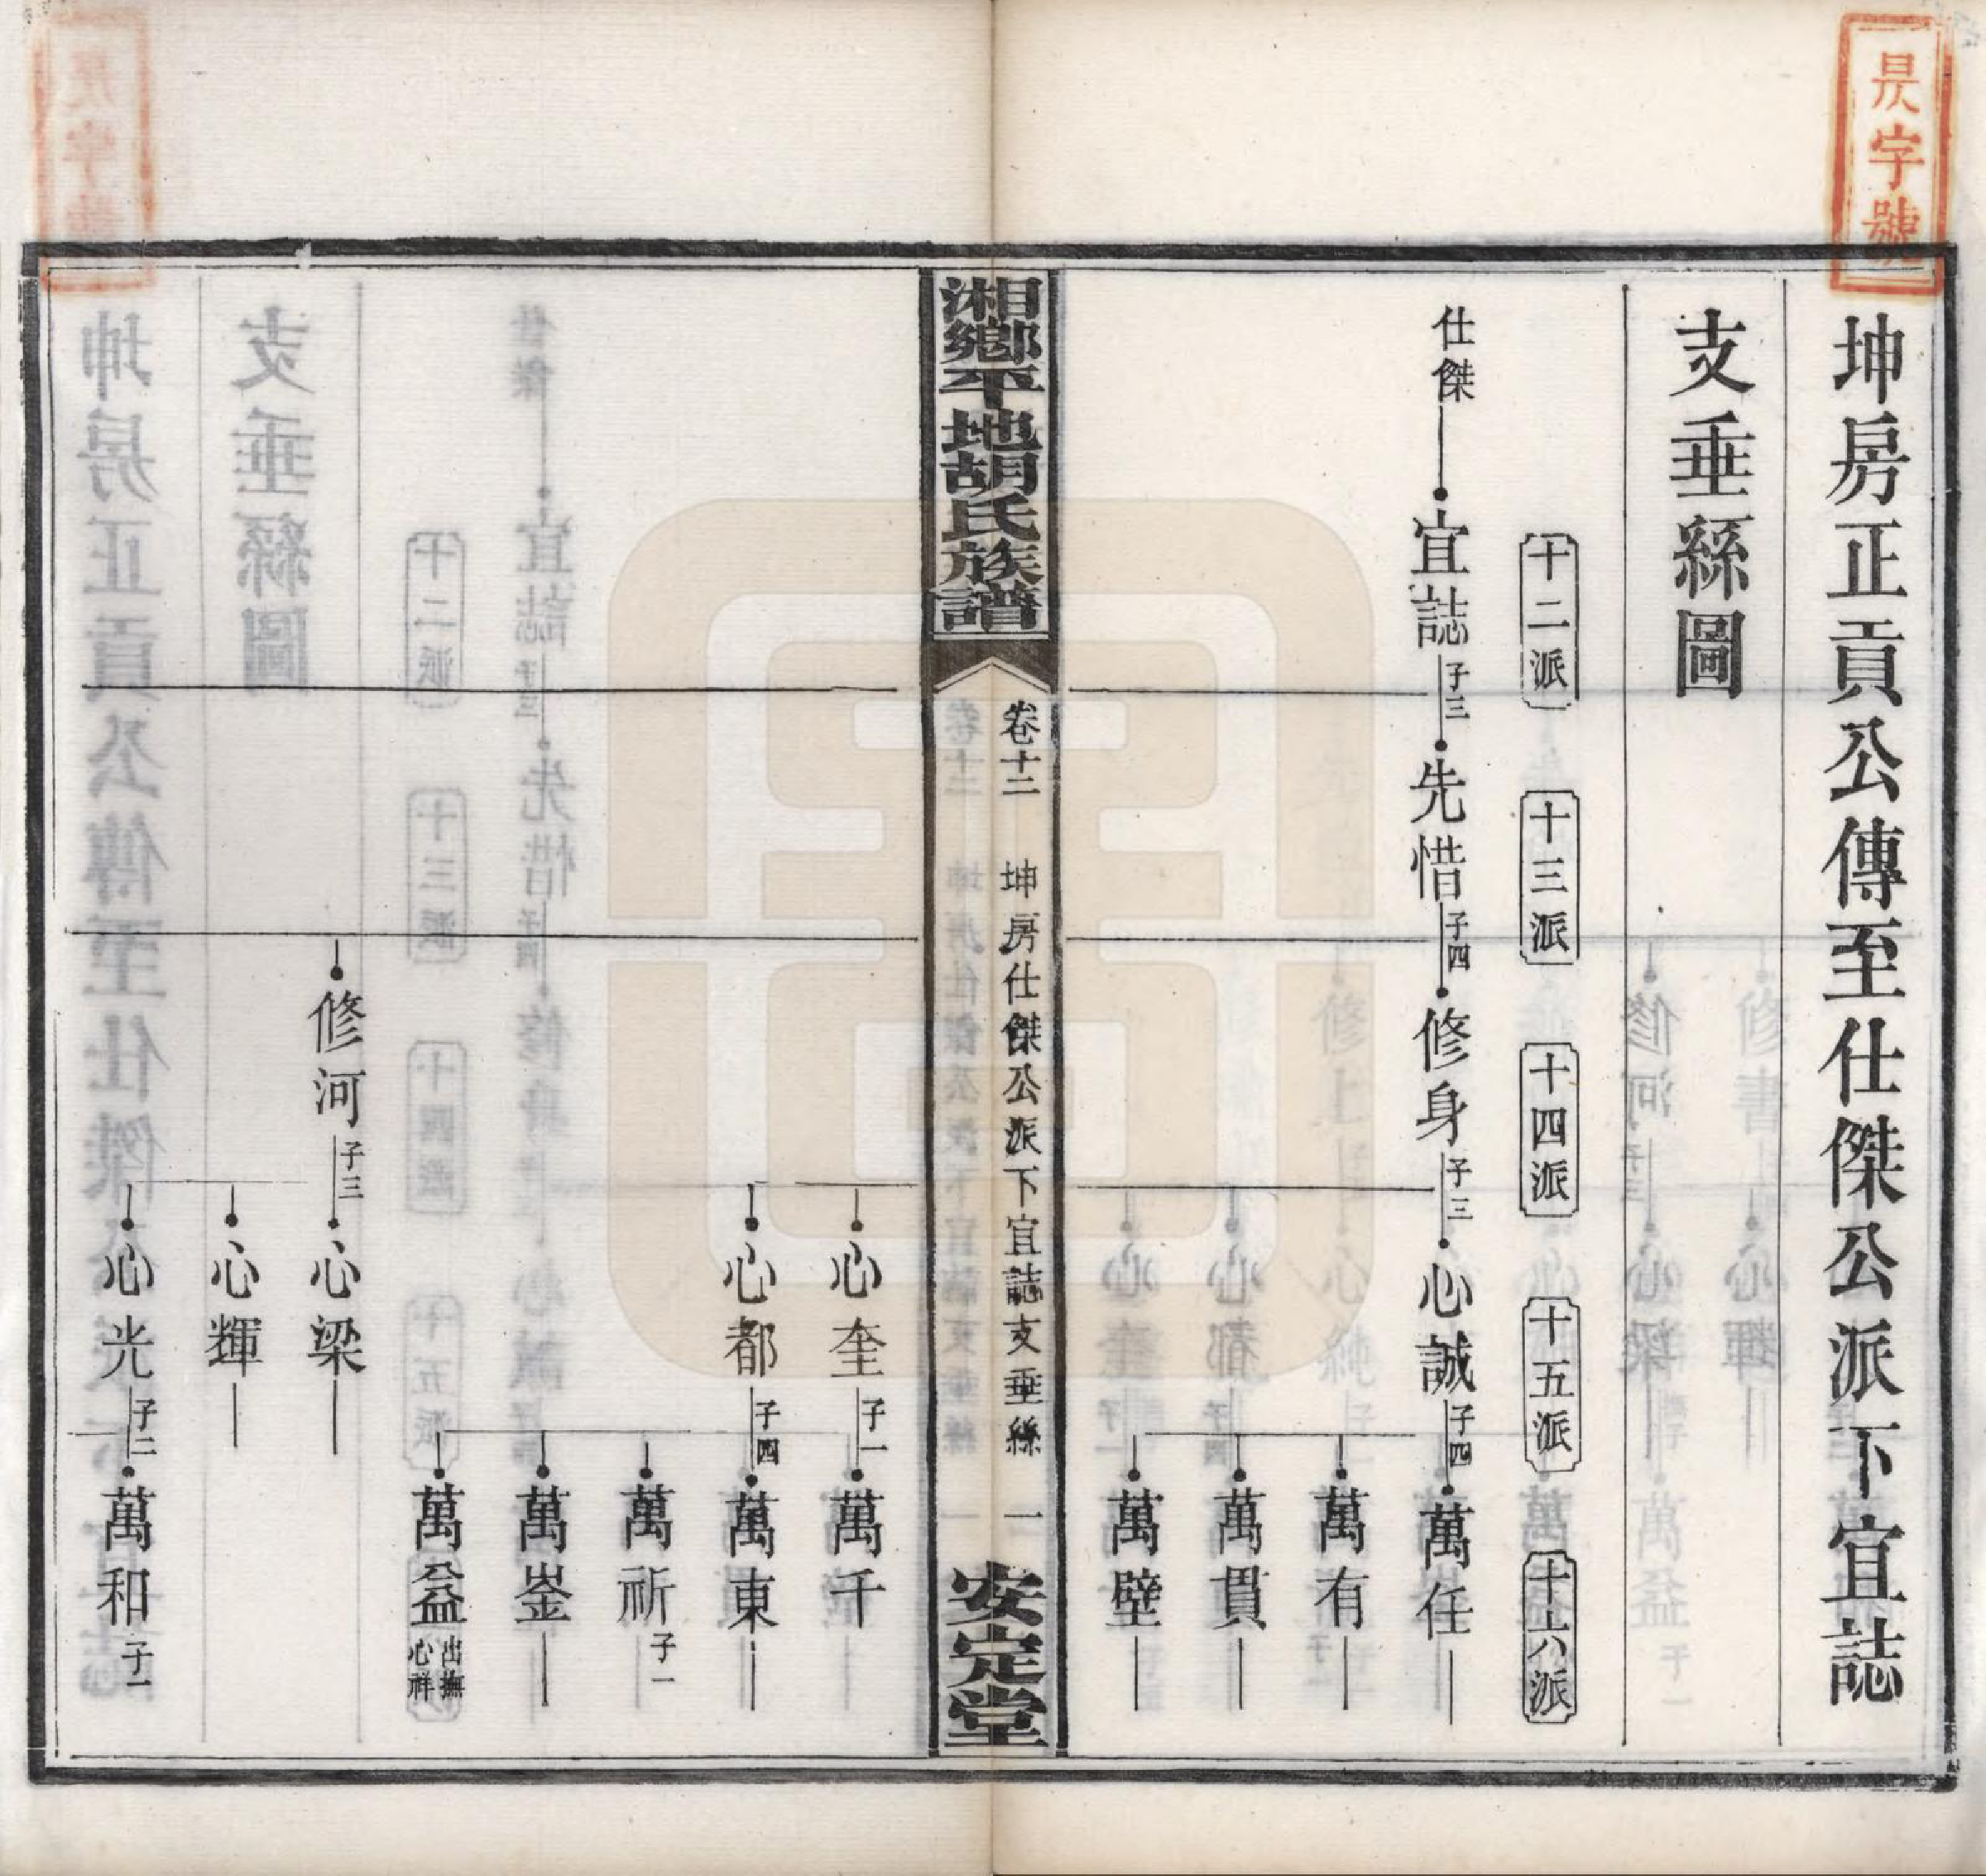 昃字號
坤房正貢公傳至仕傑公派下宜誌
支垂絲圖
十二派 十三派 十四派 十五派 十六派
仕傑 宜誌 子三 先惜 子四 修身 子三 心誠 子四 萬任
萬有
萬貫
萬壁
湘鄉平地胡氏族譜 卷十二 坤房仕傑公派下宜誌支垂絲 一 安定堂
心奎 子一 萬千
心都 子四 萬東
萬祈 子一
萬崟
萬益 出撫心祥
修河 子三 心梁
心輝
心光 子二 萬和 子一